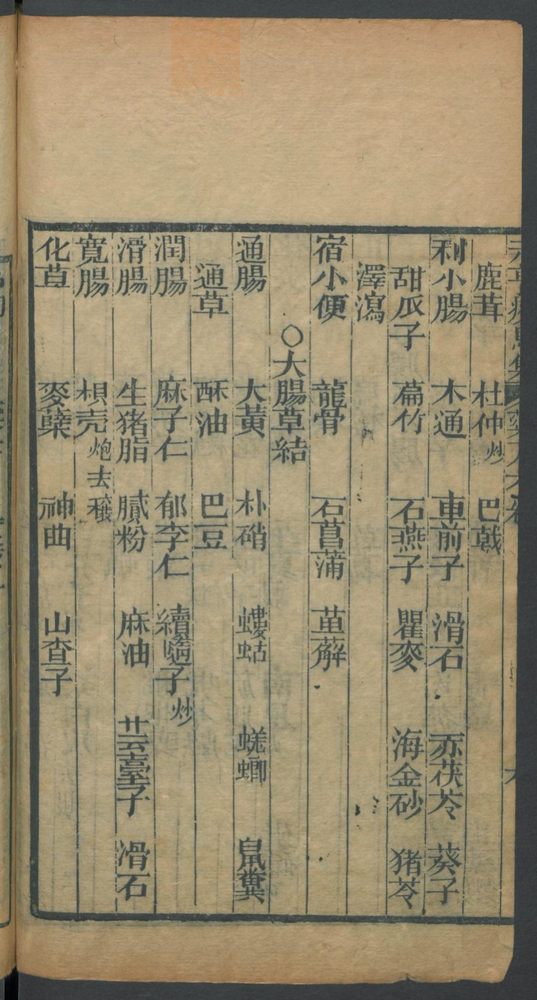 鹿茸 杜仲炒 巴戟
利小腸 木通 車前子 滑石 赤茯苓 葵子
甜瓜子 萹竹 石燕子 瞿麥 海金砂 猪苓
澤瀉
宿小便 龍骨 石菖蒲 萆薢
〇大腸草結
通腸 大黃 朴硝 螻蛄 蜣螂 鼠糞
通草 酥油 巴豆
潤腸 麻子仁 郁李仁 續隨子炒
滑腸 生猪脂 膩粉 麻油 芸薹子 滑石
寬腸 枳壳炮去穰
化草 麥蘖 神曲 山查子